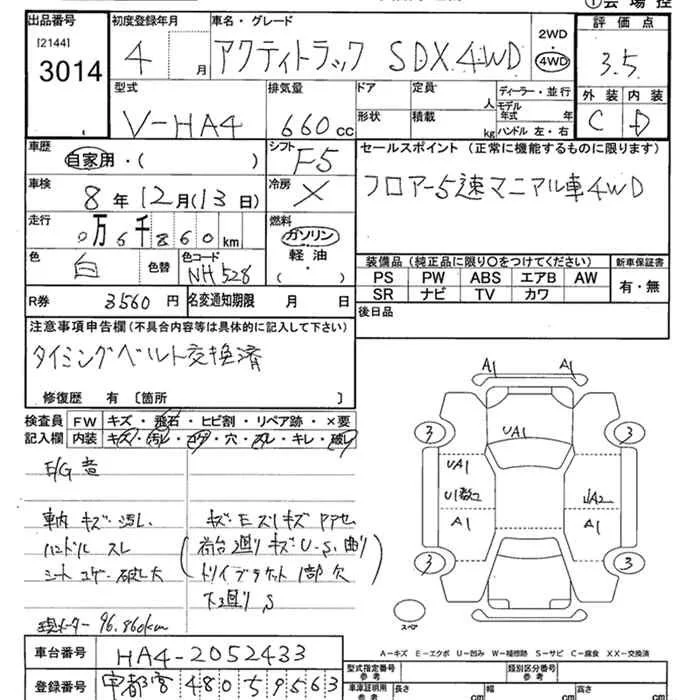 ①会場控
出品番号 初度登録年月 車名・グレード 評価点
[2144]
3014
4 月 アクティトラック SDX 4WD
2WD
・
4WD
3.5
型式 排気量 ドア 定員 人 ディーラー・並行 外装 内装
V-HA4 660 CC 形状 積載 kg モデル年式 年 C D
ハンドル 左・右
車歴 自家用・( ) シフト F5
セールスポイント (正常に機能するものに限ります)
フロアー5速マニアル車4WD
車検 8年12月(13日) 冷房 ×
走行 0万6千860km 燃料 ガソリン・軽油・( )
色 白 色替 色コード NH528
装備品(純正品に限り○をつけてください) 新車保証書
PS PW ABS エアB AW 有・無
SR ナビ TV カワ
R券 3560円 名変通知期限 月 日
後日品
注意事項申告欄(不具合内容等は具体的に記入して下さい)
タイミングベルト交換済
修復歴 有 〔箇所 〕
検査員記入欄 FW キズ・飛石・ヒビ割・リペア跡・×要
内装 キズ・汚レ・コゲ・穴・スレ・キレ・破レ
E/G 音
車内 キズ・汚レ
ハンドル スレ
シート コゲ・破レ大
キズ・Eズリキズ PPセ
荷台廻りキズU・S・曲り
ドリイブラケット1部欠
下廻りS
現メーター 96.860km
A1 A1
3 UA1 3
UA1
U1数2 UA2
A1 A1
3 3
スペア
A-キズ E-エクボ U-凹み W-補修跡 S-サビ C-腐食 XX-交換済
車台番号 HA4-2052433
登録番号 宇都宮 480 59563
型式指定番号 参考 類別区分番号 参考
車庫証明用 参考 長さ cm 幅 cm 高さ cm